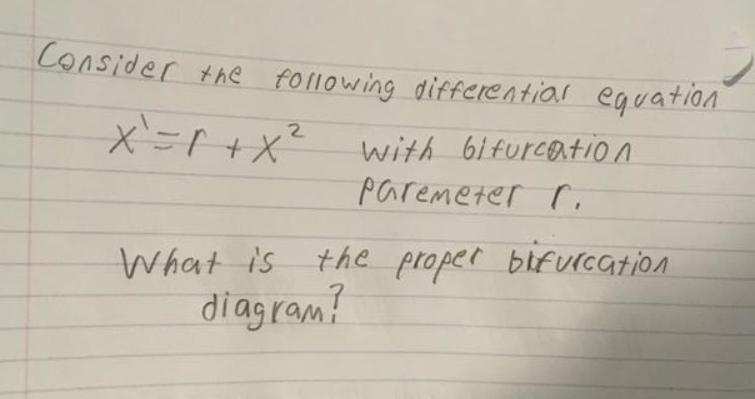 Consider the following differential equation
x' = r + x² with bifurcation
paremeter r.
What is the proper bifurcation
diagram?